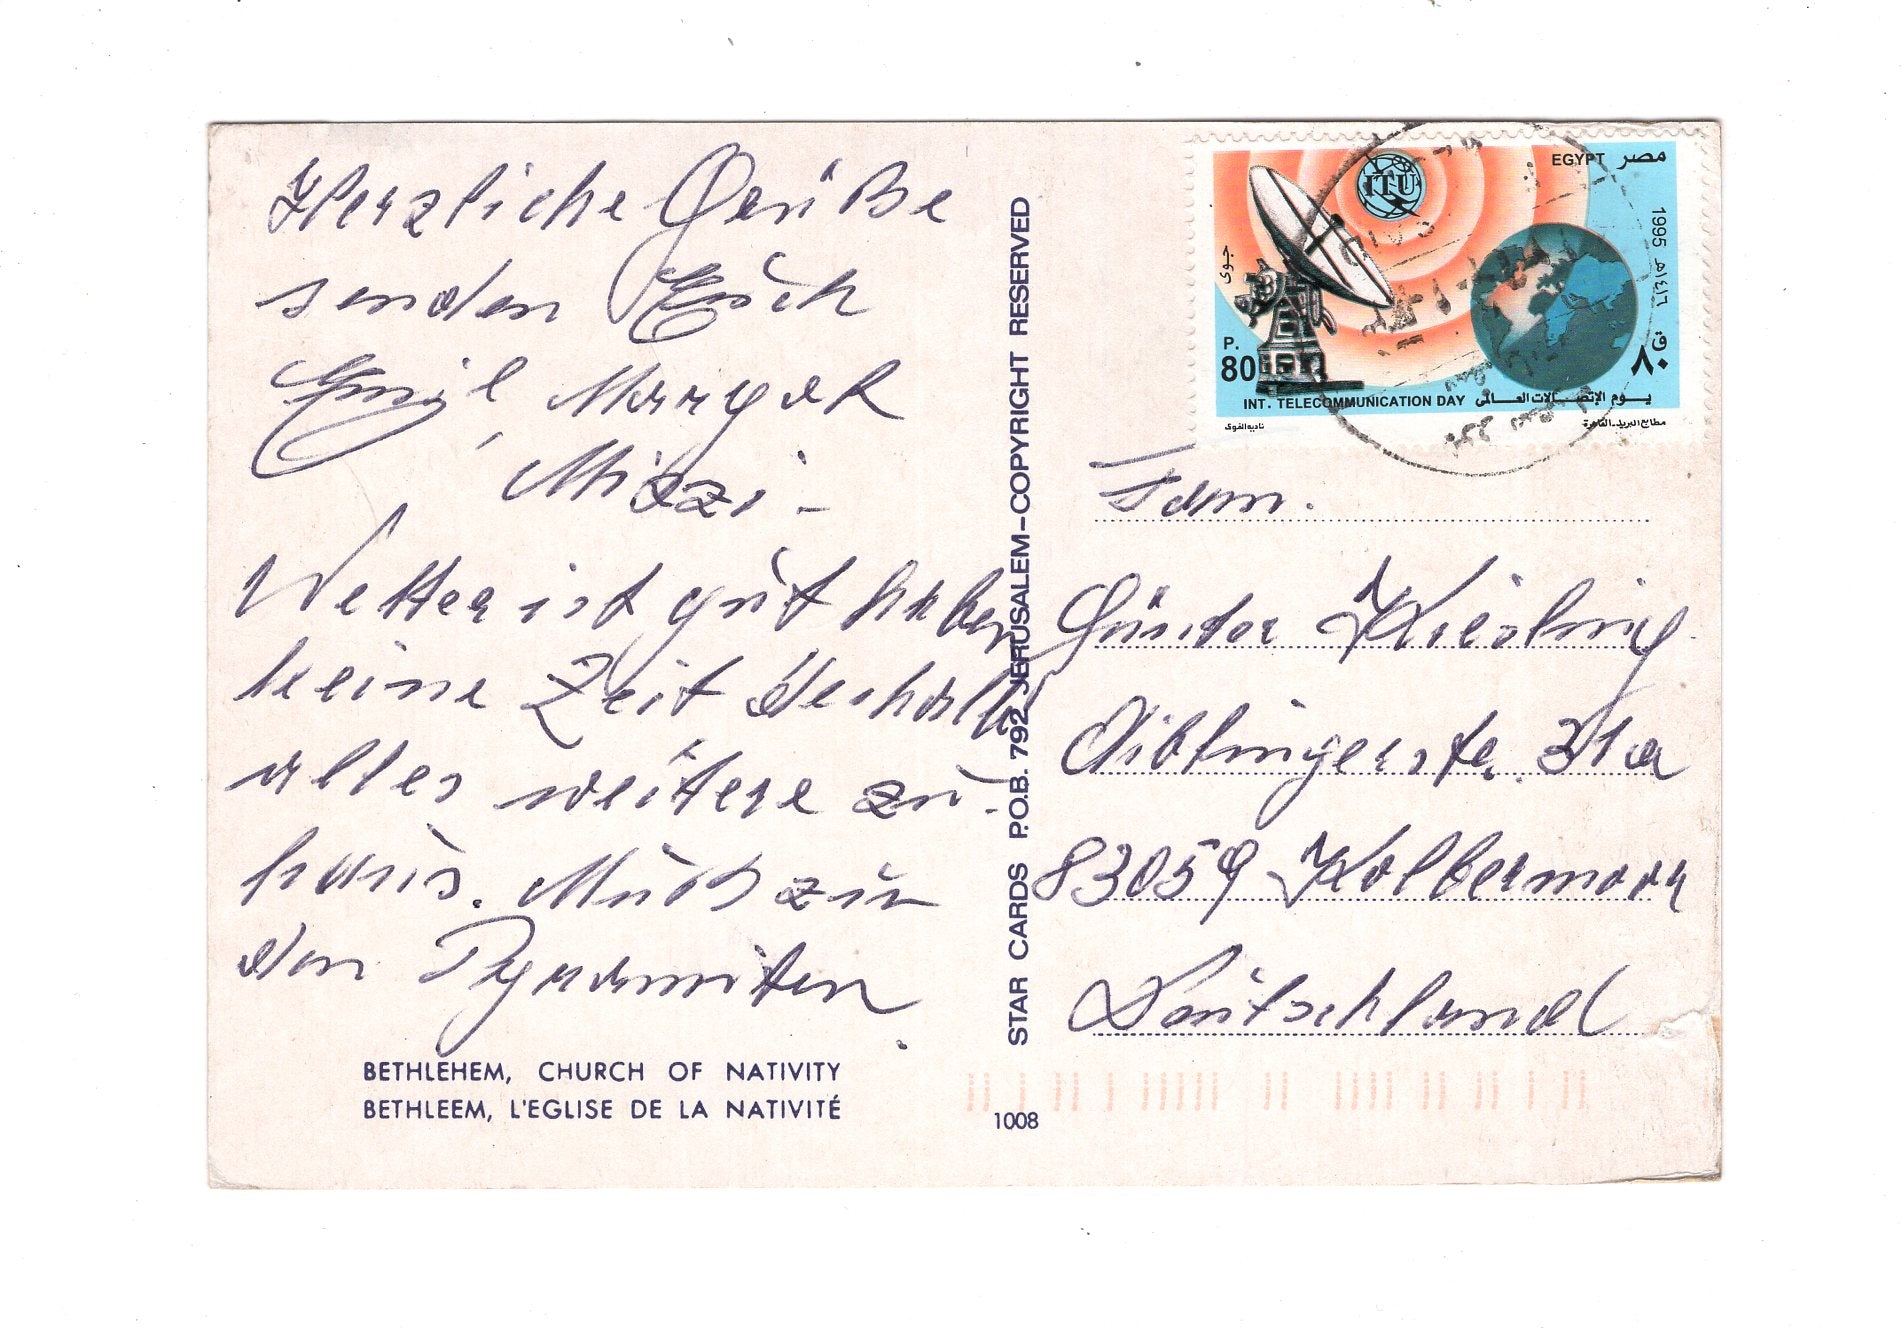 Herzliche Grüße
senden Euch
Emil Margot
Mizzi -
Wetter ist gut haben
keine Zeit deshalb
alles weitere zu-
haus. Muß zu
den Pyramiten.
BETHLEHEM, CHURCH OF NATIVITY
BETHLEEM, L'EGLISE DE LA NATIVITÉ
1008
STAR CARDS P.O.B. 792 JERUSALEM-COPYRIGHT RESERVED
EGYPT مصر
1995 ١٤١٦هـ
ITU
جوى
P. 80
٨٠ ق
INT. TELECOMMUNICATION DAY يوم الإتصالات العالمى
نادية القوى مطابع البريد-القاهرة
Fam.
Günter Kiesling
Aiblingerstr. 31a
83059 Kolbermoor
Deutschland